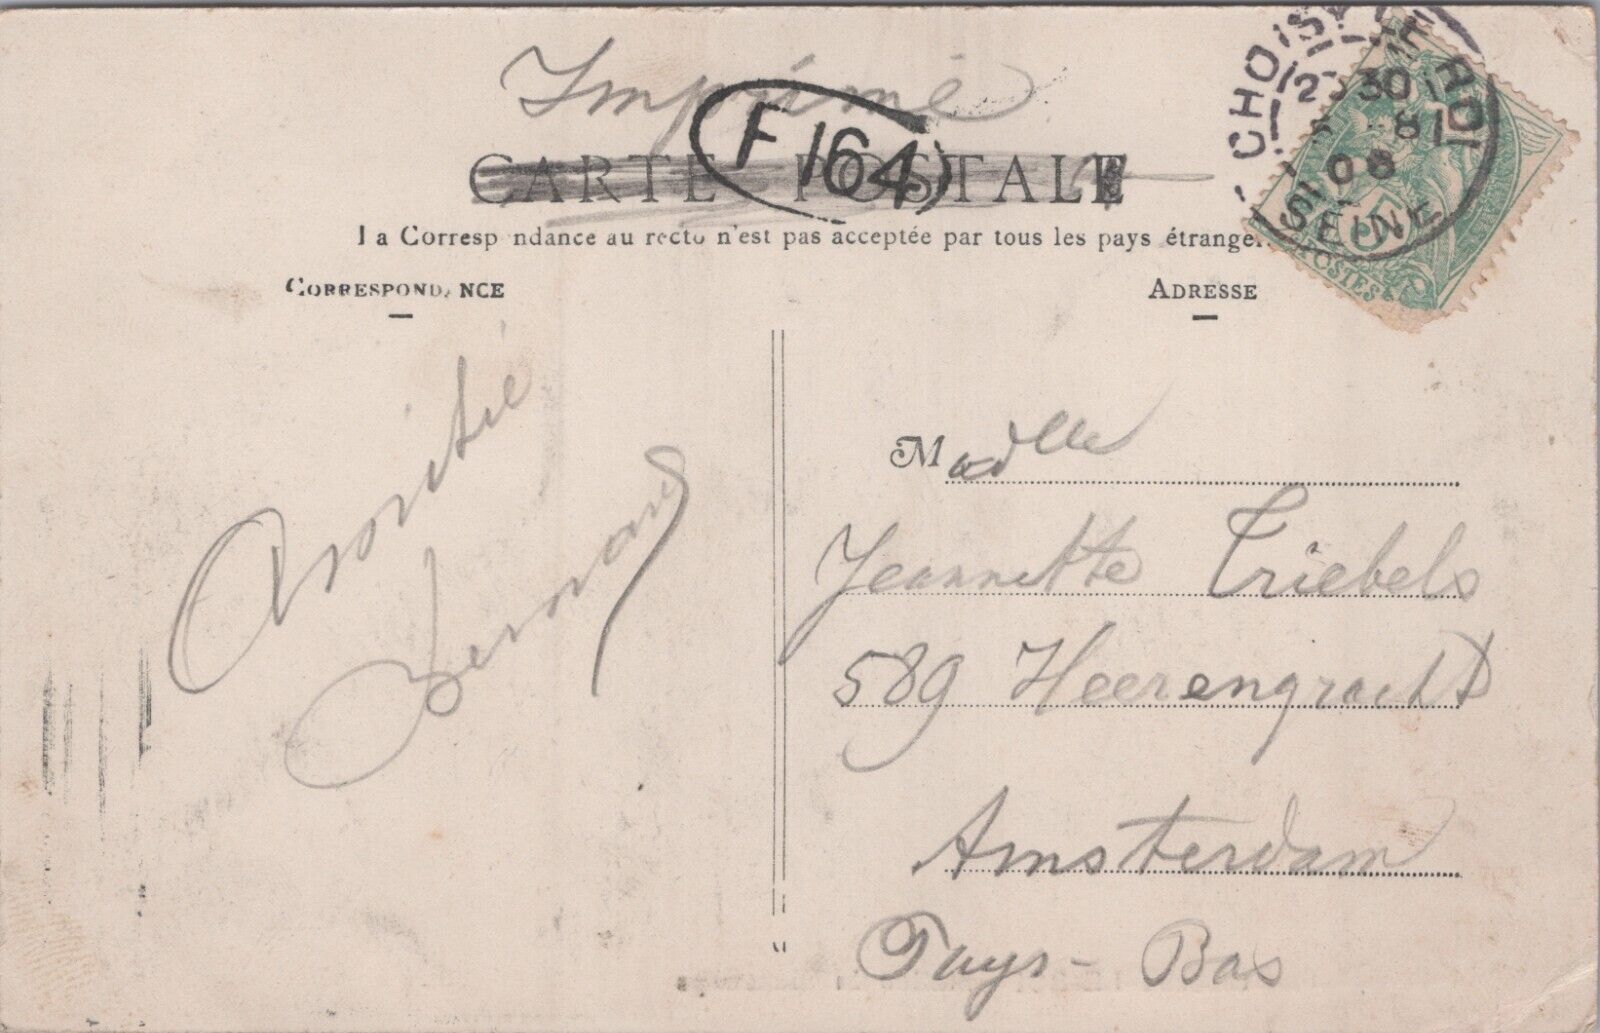 Imprimé
F 164
CARTE POSTALE
La Correspondance au recto n'est pas acceptée par tous les pays étrangers
CORRESPONDANCE
ADRESSE
CHOISY LE ROI
30
8
08
SEINE
5
POSTES
Amitié
M adlle
Jeannette Triebels
589 Heerengracht
Amsterdam
Pays-Bas